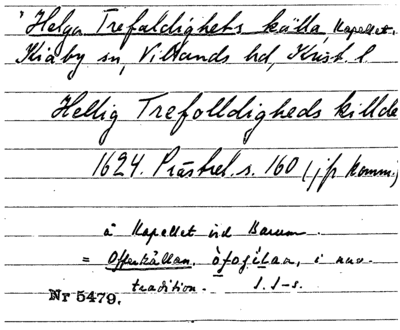 Helga Trefaldighets källa, Kapellet,
Kiaby sn, Villands hd, Krist. l.
Hellig Trefolldigheds killde
1624. Prästrel. s. 160 (jfr Komm.)
å Kapellet vid Barum.
= Offerkällan, i nuv.
tradition. I. I-s.
Nr 5479.